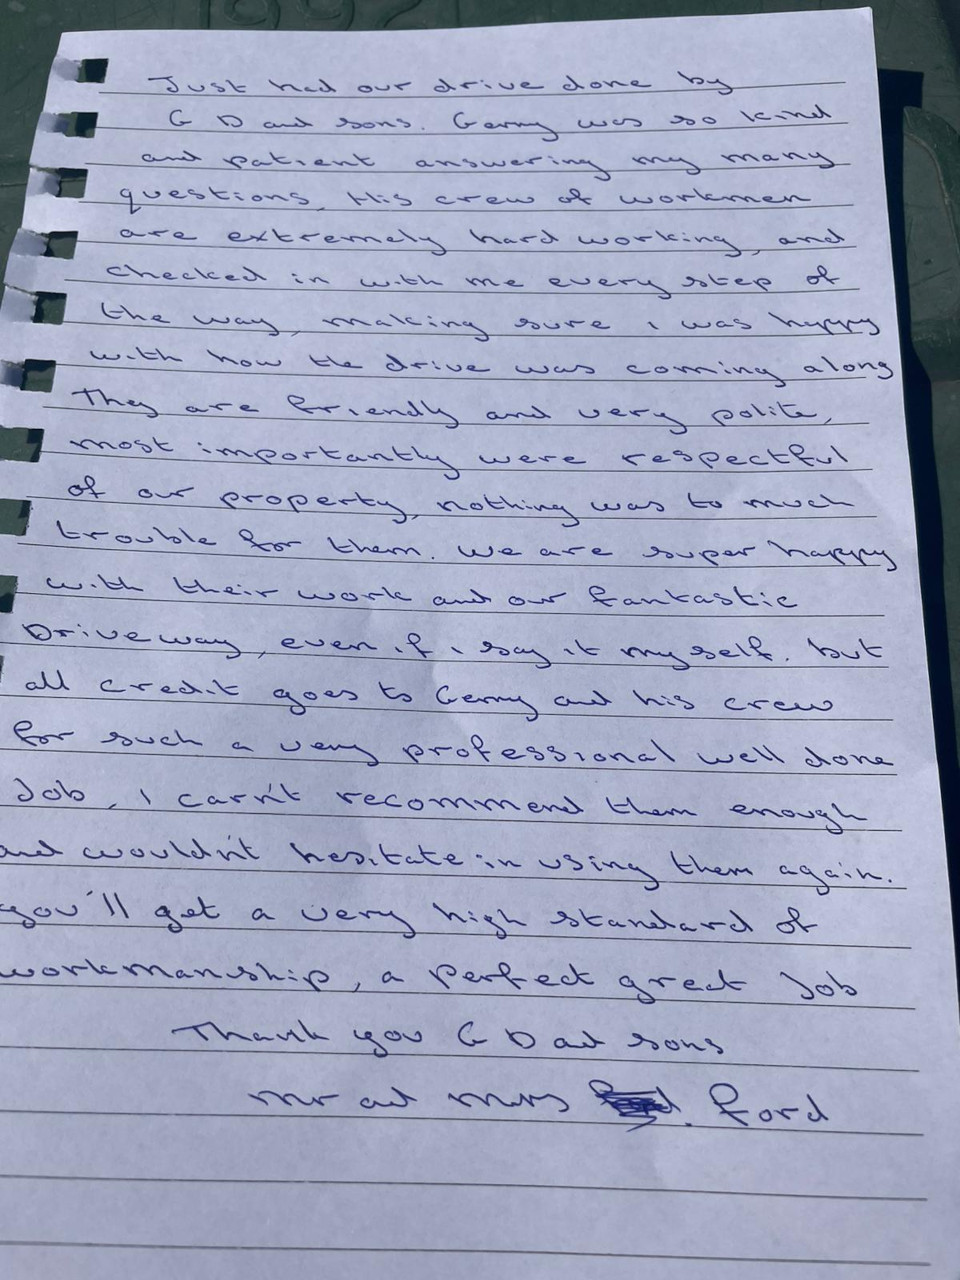 Just had our drive done by
G D and sons. Gerry was so kind
and patient answering my many
questions, His crew of workmen
are extremely hard working, and
checked in with me every step of
the way, making sure i was happy
with how the drive was coming along
They are friendly and very polite,
most importantly were respectful
of our property, nothing was to much
trouble for them. We are super happy
with their work and our fantastic
Driveway, even if i say it myself. but
all credit goes to Gerry and his crew
for such a very professional well done
Job, I can't recommend them enough
and wouldn't hesitate in using them again.
you'll get a very high standard of
workmanship, a perfect great Job
Thank you G D and sons
Mr and Mrs Ford